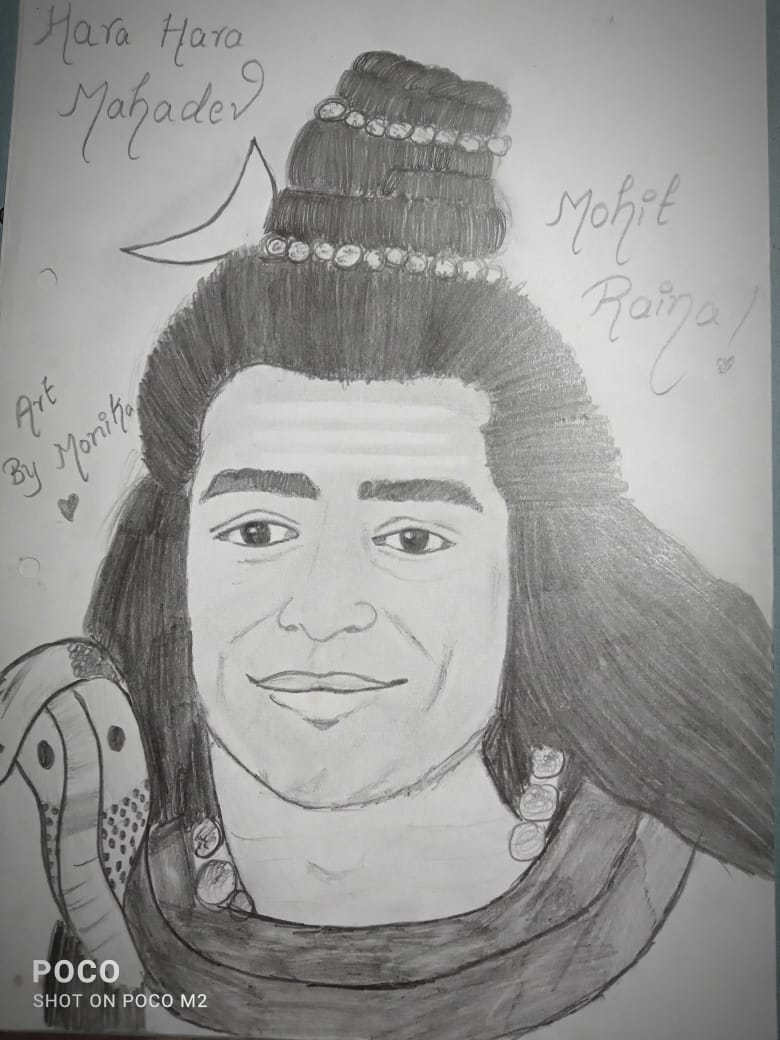 Hara Hara
Mahadev
Mohit
Raina!
Art
By Monika
POCO
SHOT ON POCO M2